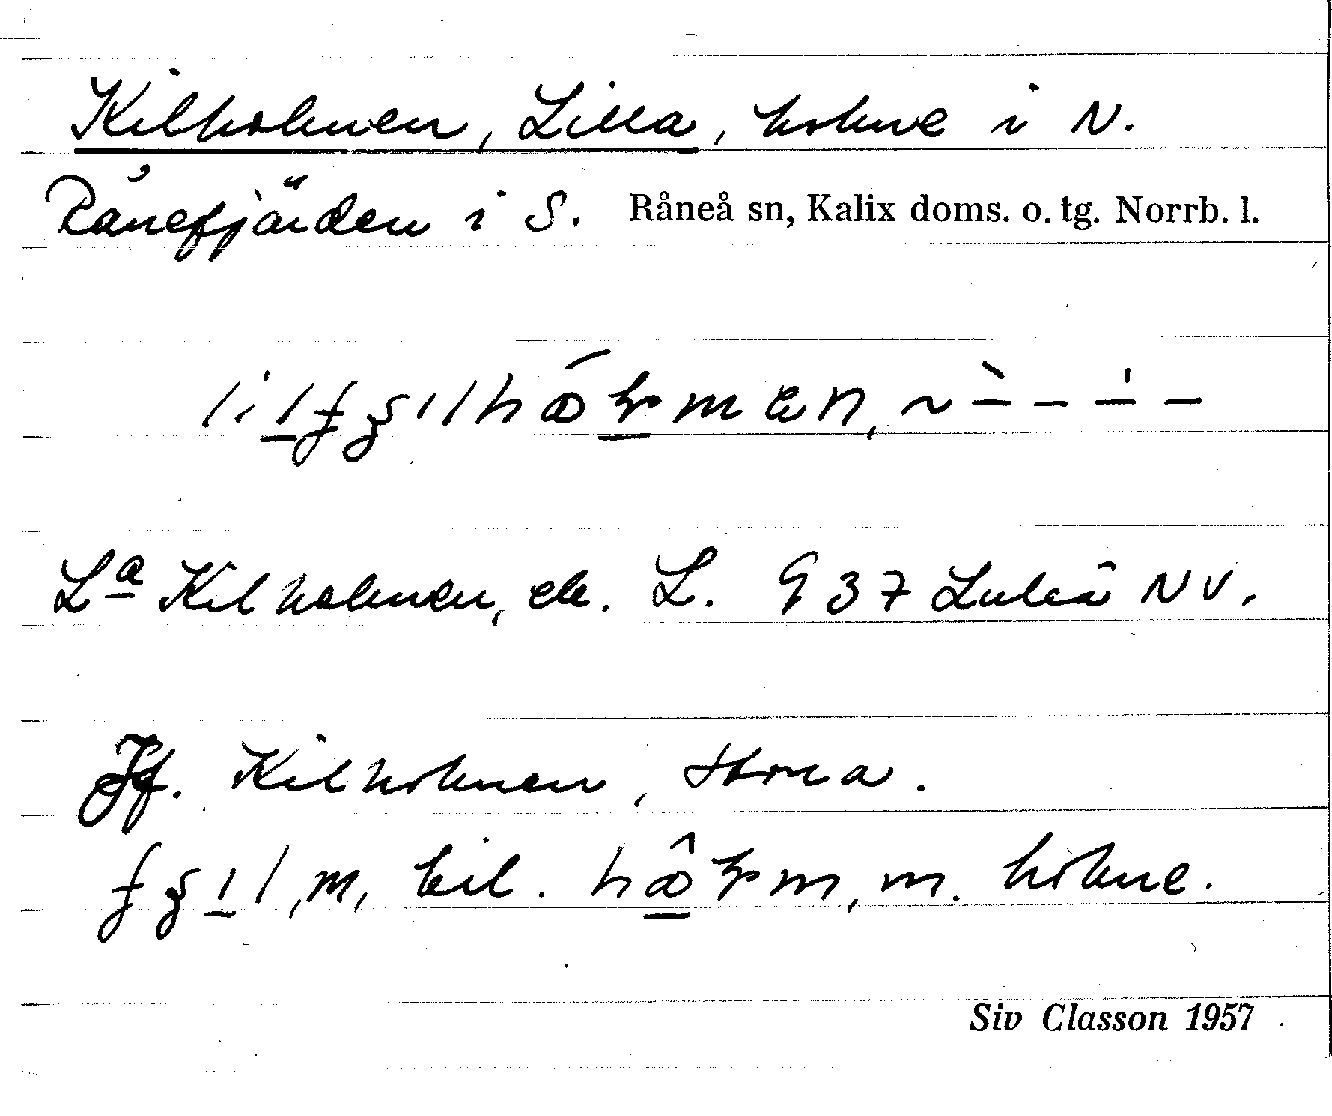 Kilholmen, Lilla, holme i N.
Rånefjärden i S. Råneå sn, Kalix doms. o. tg. Norrb. l.
Lᵃ Kilholmen, ek. L. 937 Luleå NV.
Jf. Kilholmen, Stora.
m, kil. m. holme.
Siv Classon 1957